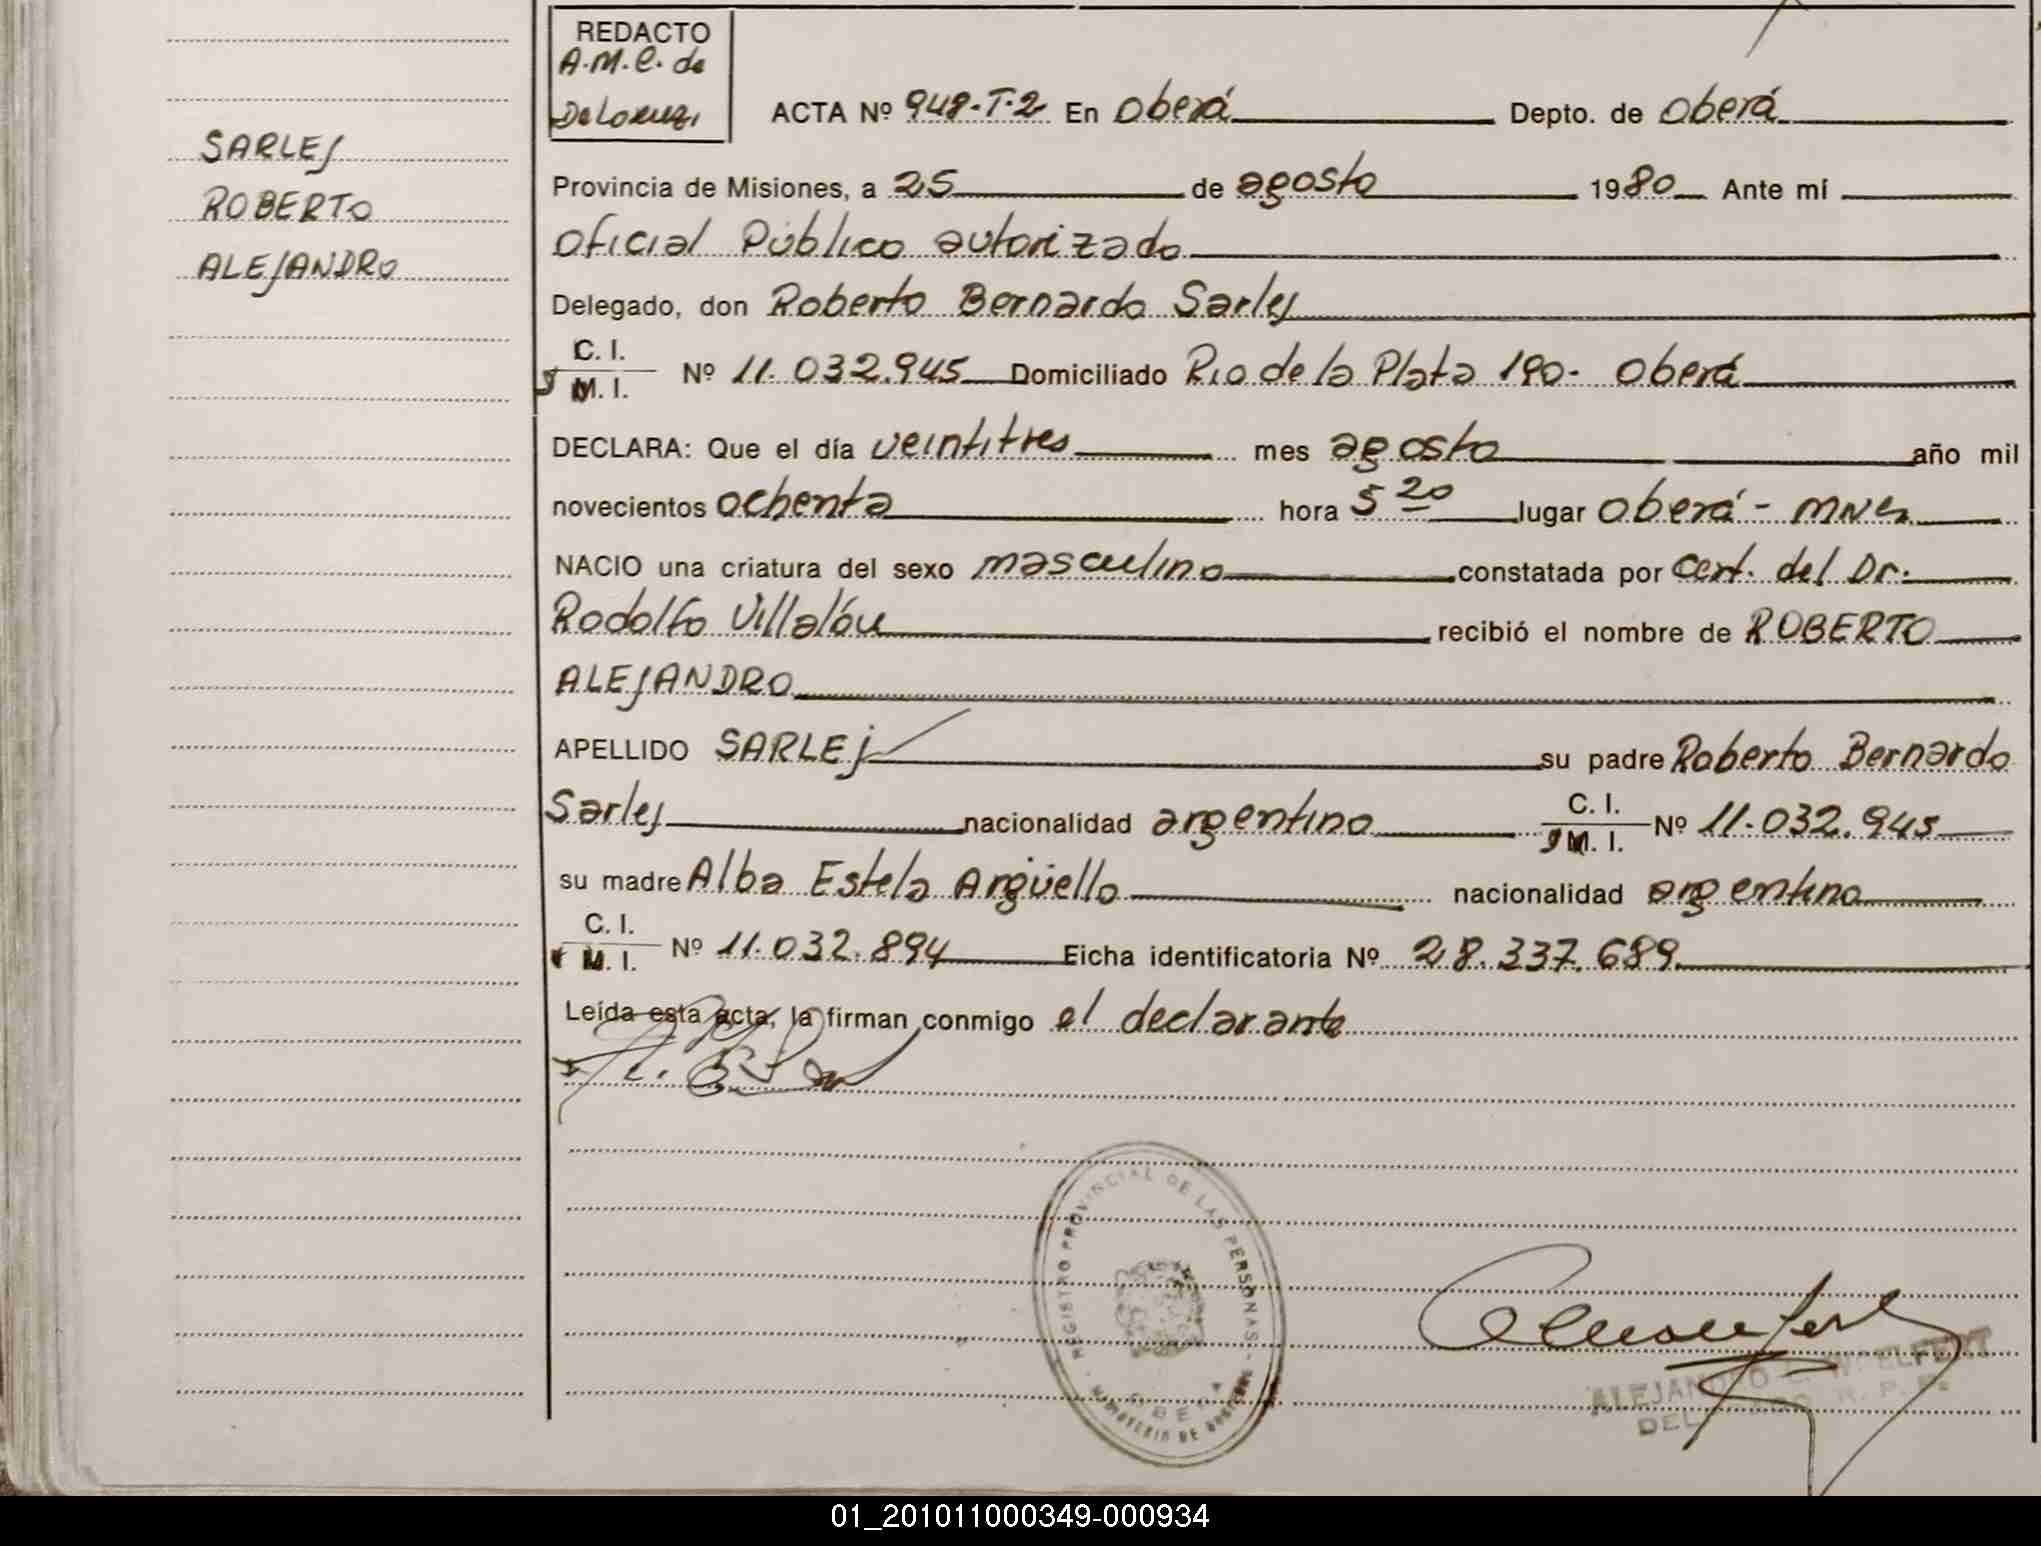 REDACTO
A.M.C. de
DeLorenzi
SARLEJ
ROBERTO
ALEJANDRO
ACTA Nº 948-T-2 En Oberá Depto. de Oberá
Provincia de Misiones, a 25 de agosto 1980 Ante mí
Oficial Público autorizado
Delegado, don Roberto Bernardo Sarlej
C. I.
M. I. Nº 11.032.945 Domiciliado Rio de la Plata 190- Oberá
DECLARA: Que el día veintitres mes agosto año mil
novecientos ochenta hora 5 20 lugar Oberá - MNES
NACIO una criatura del sexo masculino constatada por Cert. del Dr.
Rodolfo Villalón recibió el nombre de ROBERTO
ALEJANDRO
APELLIDO SARLEJ su padre Roberto Bernardo
Sarlej nacionalidad argentino C. I.
M. I. Nº 11.032.945
su madre Alba Estela Argüello nacionalidad argentina
C. I.
M. I. Nº 11.032.894 Ficha identificatoria Nº 28.337.689
Leída esta acta, la firman conmigo el declarante
REGISTRO PROVINCIAL DE LAS PERSONAS -
MINISTERIO DE GOBIERNO
OBERA
ALEJANDRO
01_201011000349-000934